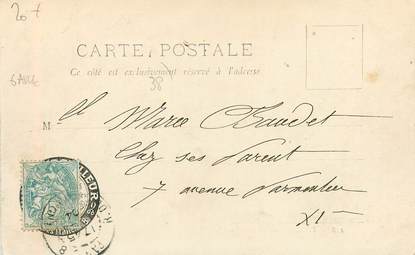 20 +
CARTE POSTALE
Ce côté est exclusivement réservé à l'adresse
38
Mlle Marie Baudet
Chez ses Parent
7 avenue Parmentier
XI